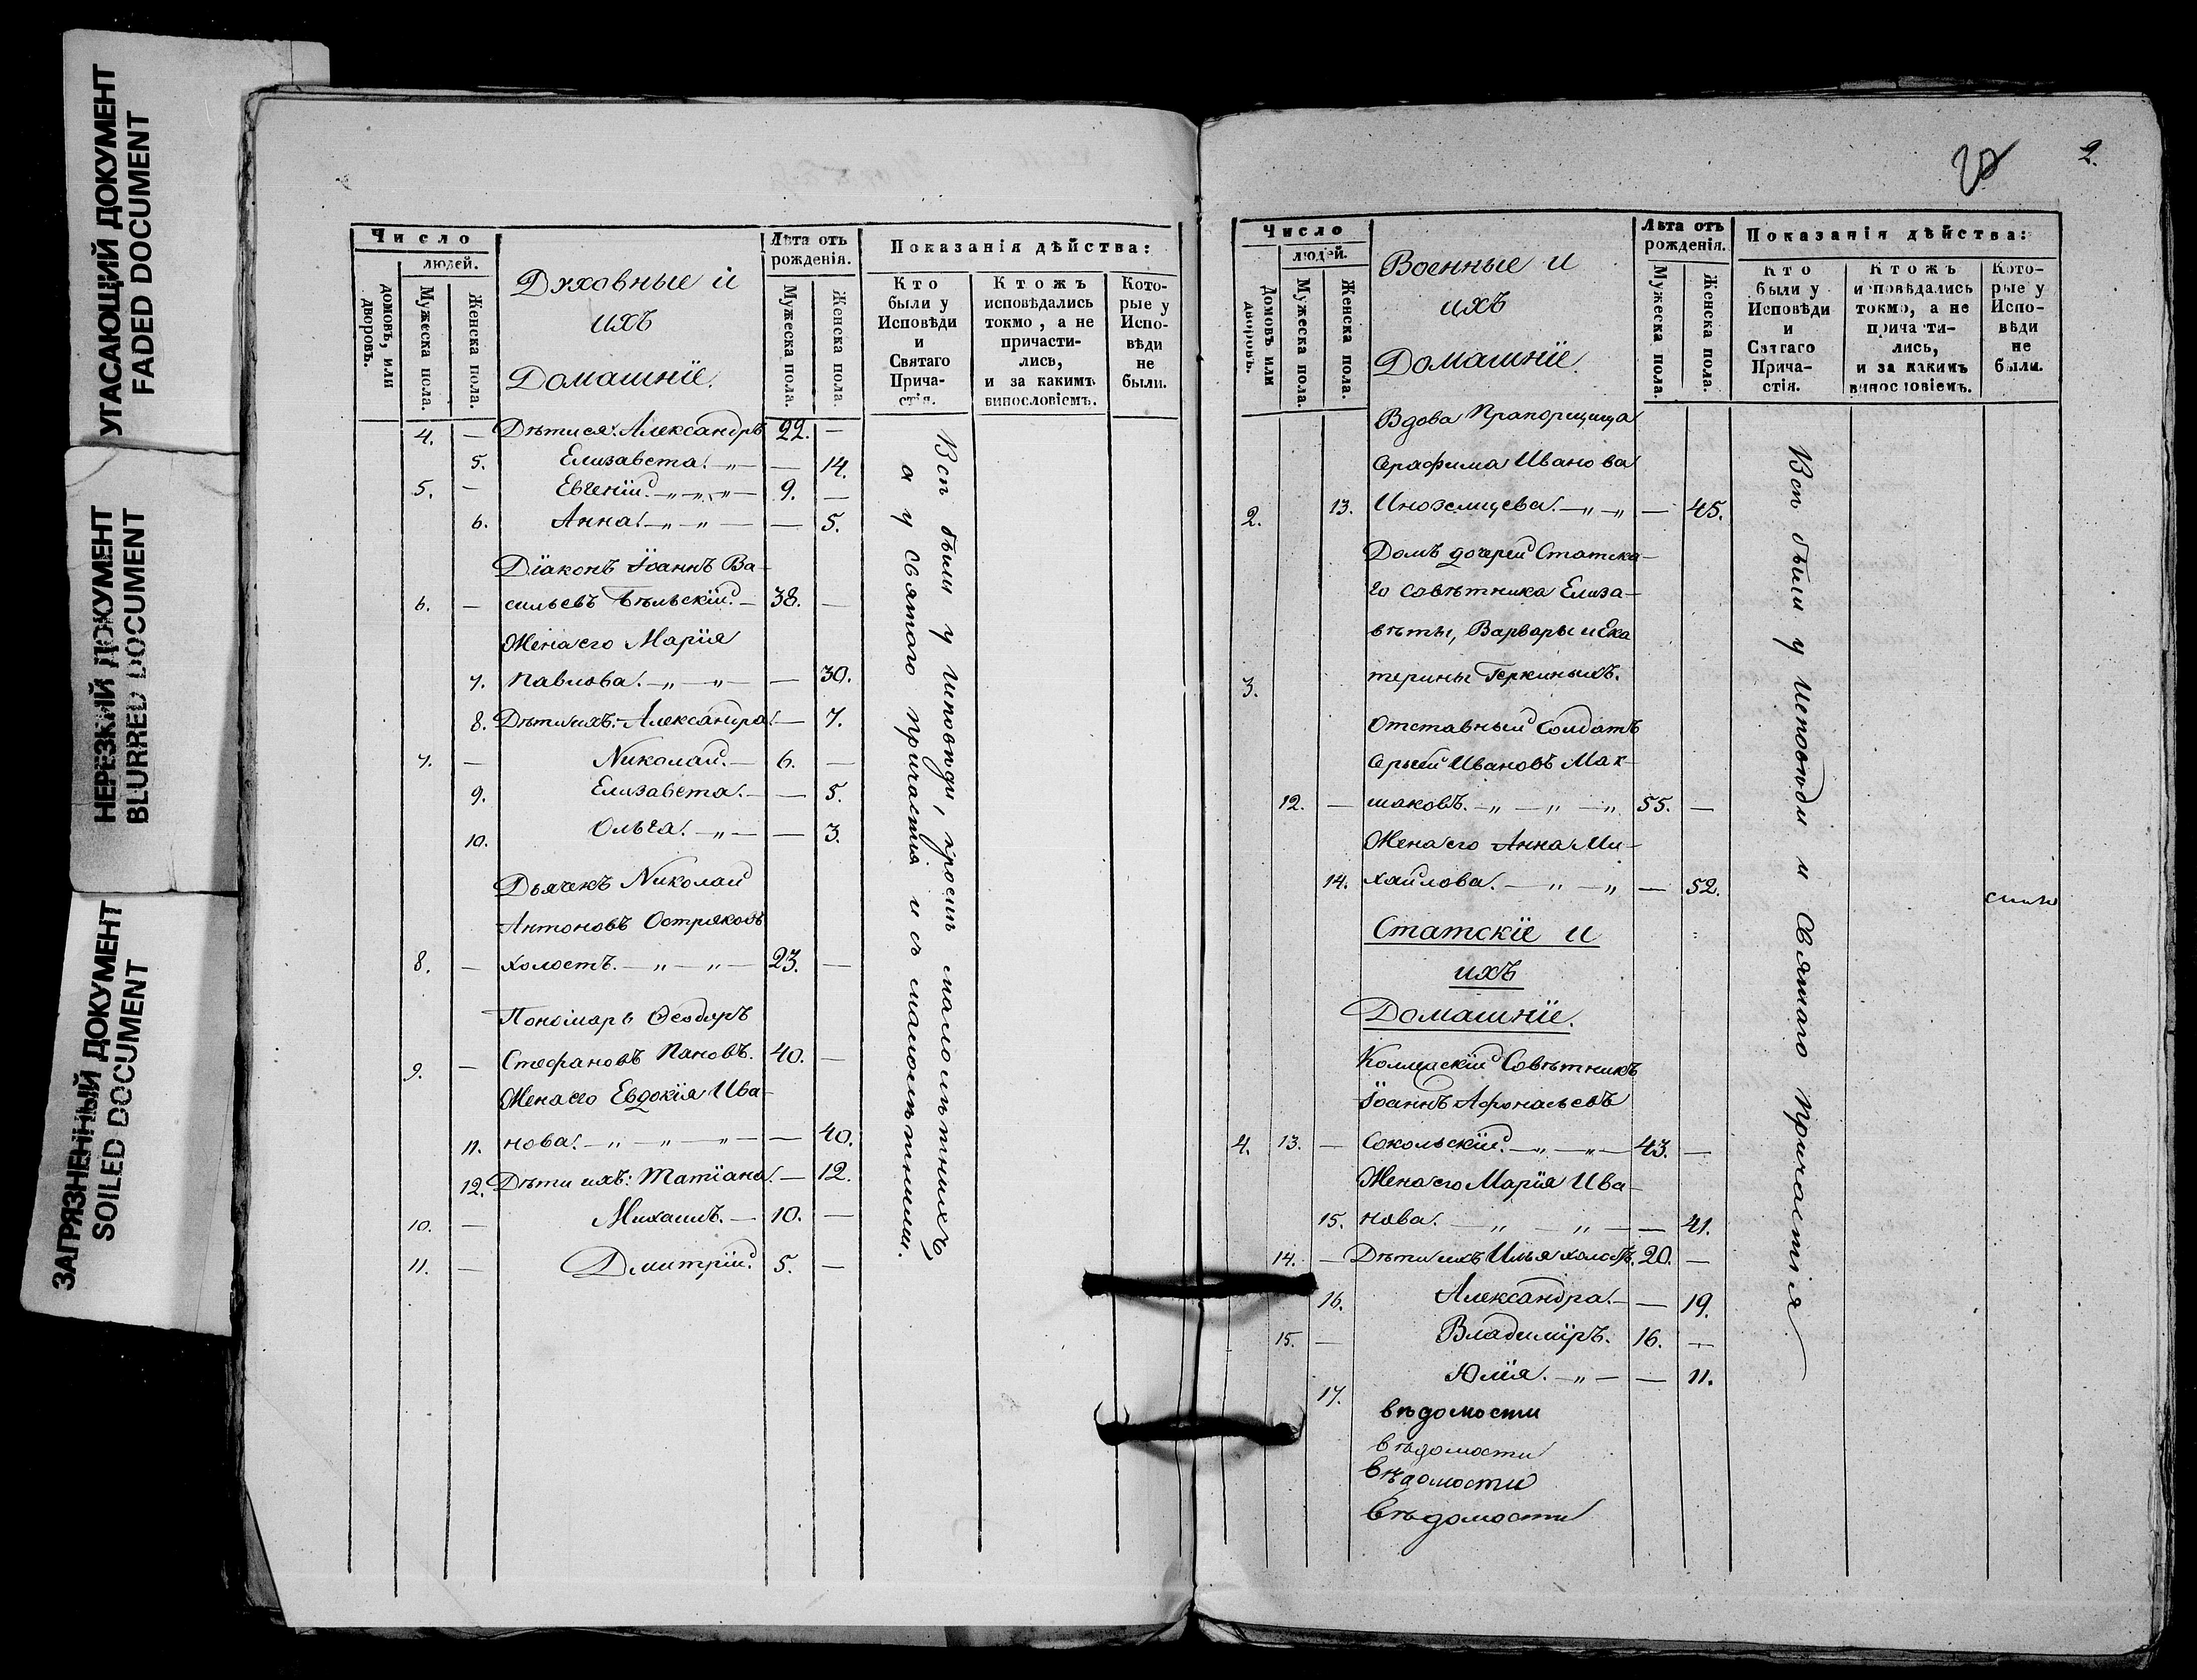 УГАСАЮЩИЙ ДОКУМЕНТ
FADED DOCUMENT
НЕРЕЗКИЙ ДОКУМЕНТ
BLURRED DOCUMENT
ЗАГРЯЗНЕННЫЙ ДОКУМЕНТ
SOILED DOCUMENT
Число
людей.
домовъ, или дворовъ.
Мужеска пола.
Женска пола.
Духовные и
ихъ
Домашніе.
Лѣта отъ
рожденія.
Мужеска пола.
Женска пола.
Показанія дѣйства:
Кто
были у
Исповѣди
и
Святаго
Прича-
стія.
Ктожъ
исповѣдались
токмо, а не
причасти-
лись,
и за какимъ
винословіемъ.
Кото-
рые у
Испо-
вѣди
не
были.
4. — Дѣти ея: Александръ 22. —
5. Елизавета. — 14.
5. — Евгеній. 9. —
6. Анна. — 5.
Діаконъ Іоаннъ Ва-
6. — сильевъ Бѣльскій. 38. —
Жена его Марія
7. Павлова. — 30.
8. Дѣти ихъ: Александра. — 7.
7. — Николай. 6. —
9. Елизавета. — 5.
10. Ольга. — 3.
Дьячекъ Николай
Антоновъ Остряковъ
8. — холостъ. 23. —
Пономарь Ѳеодоръ
9. — Стефановъ Пановъ. 40. —
Жена его Евдокія Ива-
11. нова. — 40.
12. Дѣти ихъ: Татіана. — 12.
10. — Михаилъ. 10. —
11. — Дмитрій. 5. —
Всѣ были у исповѣди, кромѣ малолѣтнихъ,
а у Святаго Причастія и съ малолѣтними.
2.
Число
людей.
Домовъ или дворовъ.
Мужеска пола.
Женска пола.
Военные и
ихъ
Домашніе.
Лѣта отъ
рожденія.
Мужеска пола.
Женска пола.
Показанія дѣйства:
Кто
были у
Исповѣди
и
Святаго
Прича-
стія.
Ктожъ
исповѣдались
токмо, а не
причасти-
лись,
и за какимъ
винословіемъ.
Кото-
рые у
Испо-
вѣди
не
были.
Вдова Прапорщица
Серафима Иванова
2. 13. Иноземцева. — 45.
Домъ дочерей Статска-
го совѣтника Елиза-
вѣты, Варвары и Ека
3. терины Геркиныхъ.
Отставный Солдатъ
Сергѣй Ивановъ Мак-
12. — шаковъ. 55. —
Жена его Анна Ми-
14. хайлова. — 52.
Статскіе и
ихъ
Домашніе.
Коллежскій Совѣтникъ
Іоаннъ Афонасьевъ
4. 13. — Сокольскій. 43. —
Жена его Марія Ива-
15. нова. — 41.
14. — Дѣти ихъ Илья холостъ. 20. —
16. Александра. — 19.
15. — Владиміръ. 16. —
17. Юлія. — 11.
вѣдомости
вѣдомости
вѣдомости
Вѣдомости
Всѣ были у Исповѣди и Святаго Причастія